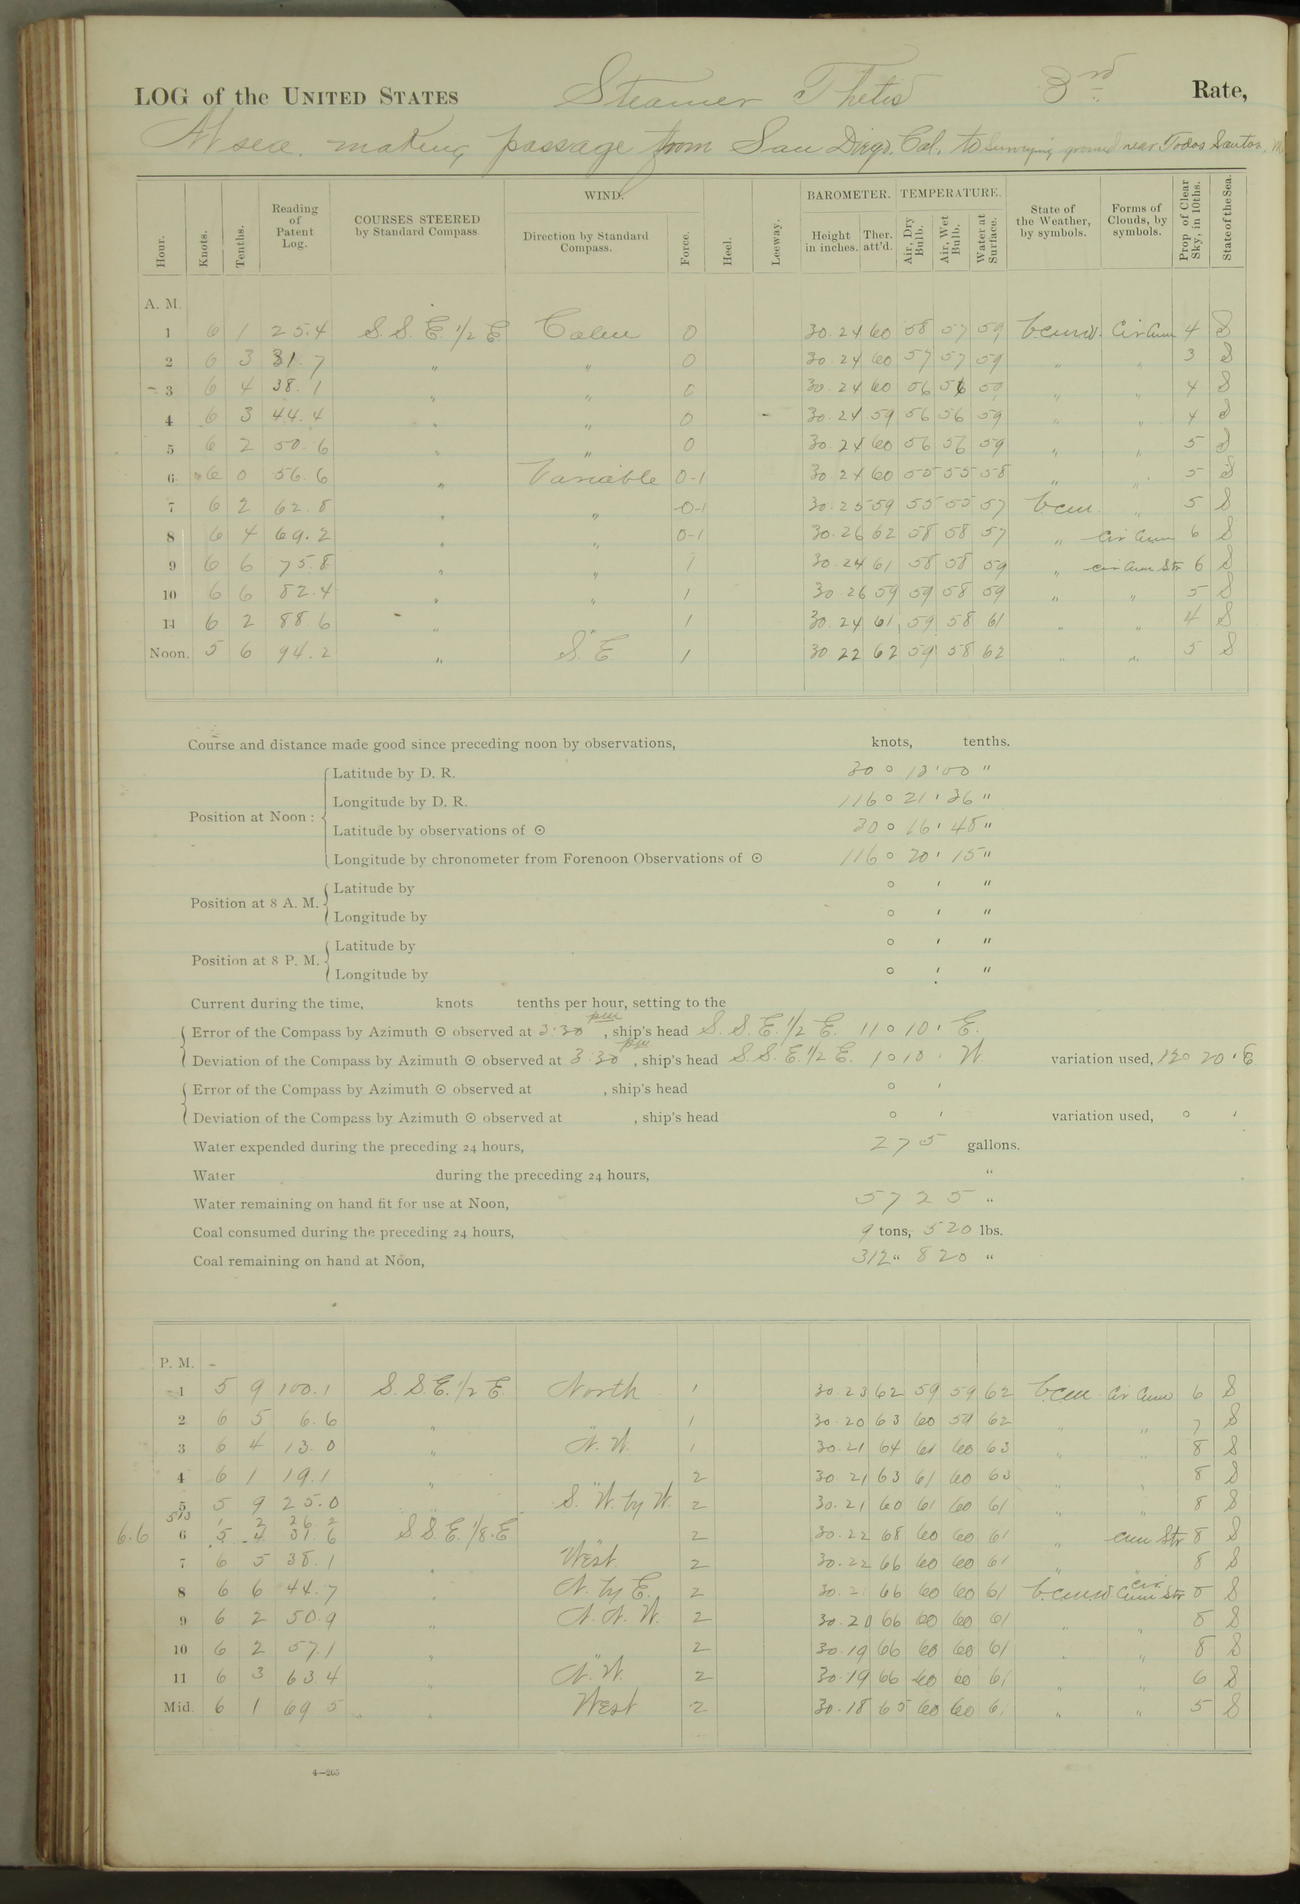 LOG of the UNITED STATES Steamer Thetis 3rd Rate,
At sea, making passage from San Diego, Cal. to Surveying ground near Todos Santos, M
Hour. Knots. Tenths. Reading of Patent Log. COURSES STEERED by Standard Compass WIND. Direction by Standard Compass. Force. Heel. Leeway. BAROMETER. Height in inches. Ther. att'd. TEMPERATURE. Air, Dry Bulb. Air, Wet Bulb. Water at Surface. State of the Weather, by symbols. Forms of Clouds, by symbols. Prop of Clear Sky, in 10ths. State of the Sea.
A. M.
1 6 1 25.4 S. S. E. 1/2 E Calm 0 30.24 60 58 57 59 bcmw. Cir Cum 4 S
2 6 3 31.7 " " 0 30.24 60 57 57 59 " " 3 S
3 6 4 38.1 " " 0 30.24 60 56 56 59 " " 4 S
4 6 3 44.4 " " 0 30.24 59 56 56 59 " " 4 S
5 6 2 50.6 " " 0 30.24 60 56 56 59 " " 5 S
6 6 0 56.6 " Variable 0-1 30.24 60 55 55 58 " " 5 S
7 6 2 62.8 " " 0-1 30.25 59 55 55 57 bcm " 5 S
8 6 4 69.2 " " 0-1 30.26 62 58 58 57 " Cir Cum 6 S
9 6 6 75.8 " " 1 30.24 61 58 58 59 " Cir Cum Str 6 S
10 6 6 82.4 " " 1 30.26 59 59 58 59 " " 5 S
11 6 2 88.6 " " 1 30.24 61 59 58 61 " " 4 S
Noon. 5 6 94.2 " S. E 1 30 22 62 59 58 62 " " 5 S
Course and distance made good since preceding noon by observations, knots, tenths.
Position at Noon :
Latitude by D. R. 30 ° 13 ' 00 "
Longitude by D. R. 116 ° 21 ' 36 "
Latitude by observations of ☉ 30 ° 16 ' 48 "
Longitude by chronometer from Forenoon Observations of ☉ 116 ° 20 ' 15 "
Position at 8 A. M.
Latitude by ° ' "
Longitude by ° ' "
Position at 8 P. M.
Latitude by ° ' "
Longitude by ° ' "
Current during the time, knots tenths per hour, setting to the
Error of the Compass by Azimuth ☉ observed at 3:30 pm , ship's head S. S. E. 1/2 E. 11 ° 10 ' E.
Deviation of the Compass by Azimuth ☉ observed at 3:30 pm , ship's head S. S. E. 1/2 E. 1 ° 10 ' W. variation used, 12° 20 ' E
Error of the Compass by Azimuth ☉ observed at , ship's head ° '
Deviation of the Compass by Azimuth ☉ observed at , ship's head ° ' variation used, ° '
Water expended during the preceding 24 hours, 275 gallons.
Water during the preceding 24 hours, "
Water remaining on hand fit for use at Noon, 5725 "
Coal consumed during the preceding 24 hours, 9 tons, 520 lbs.
Coal remaining on hand at Noon, 312 " 820 "
P. M.
1 5 9 100.1 S. S. E. 1/2 E. North 1 30.23 62 59 59 62 bcm Cir Cum 6 S
2 6 5 6.6 " " 1 30.20 63 60 59 62 " " 7 S
3 6 4 13.0 " N. W. 1 30.21 64 61 60 63 " " 8 S
4 6 1 19.1 " " 2 30 21 63 61 60 63 " " 8 S
5 5 9 25.0 " S. W. by W. 2 30.21 60 61 60 61 " " 8 S
1 2 26.2
6.6 6 5 4 31.6 S. S. E. 1/8 E " 2 30.22 68 60 60 61 " Cum Str 8 S
7 6 5 38.1 " West 2 30.22 66 60 60 61 " " 8 S
8 6 6 44.7 " N. by E. 2 30.2 66 60 60 61 bcmw Cir Cum Str 8 S
9 6 2 50.9 " N. N. W. 2 30.20 66 60 60 61 " " 8 S
10 6 2 57.1 " " 2 30.19 66 60 60 61 " " 8 S
11 6 3 63.4 " N. W. 2 30.19 66 60 60 61 " " 6 S
Mid. 6 1 69 5 " West 2 30.18 65 60 60 61 " " 5 S
4—205